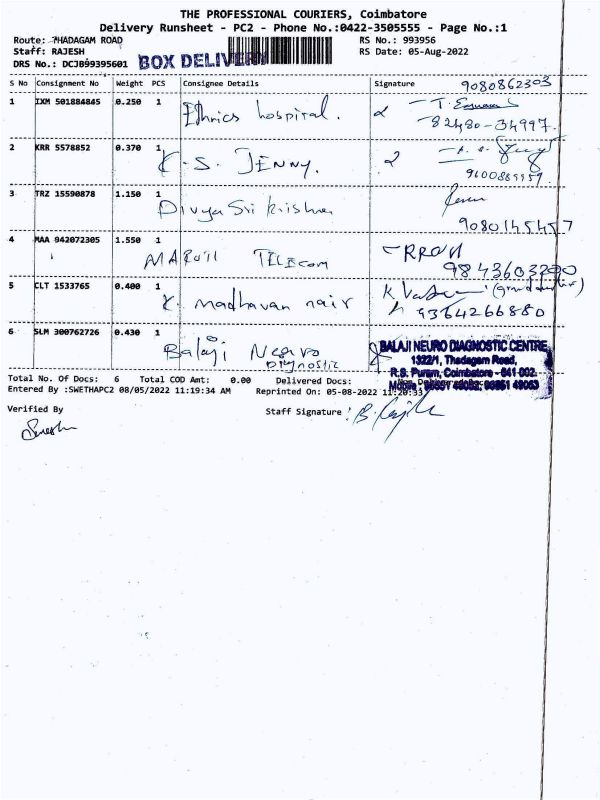 THE PROFESSIONAL COURIERS, Coimbatore
Delivery Runsheet - PC2 - Phone No.:0422-3505555 - Page No.:1
Route: THADAGAM ROAD
Staff: RAJESH
DRS No.: DCJB99395601
BOX DELIVERY
RS No.: 993956
RS Date: 05-Aug-2022
S No Consignment No Weight PCS Consignee Details Signature 9080862303
1 IXM 501884845 0.250 1 Ethnics hospital. T.
82480-34997
2 KRR 5578852 0.370 1 K.S. JENNY.
3 TRZ 15590878 1.150 1 Divya Sri krishna
9080145457
4 MAA 942072305 1.550 1 MARUTI TELECOM
9843603290
5 CLT 1533765 0.400 1 K. madhavan nair K
9364266880
6 SLM 300762726 0.430 1 Balaji Neuro
DIAGNOSTIC
BALAJI NEURO DIAGNOSTIC CENTRE
1322/1, Thadagam Road,
R.S. Puram, Coimbatore - 641 002.
Total No. Of Docs: 6 Total COD Amt: 0.00 Delivered Docs:
Entered By :SWETHAPC2 08/05/2022 11:19:34 AM Reprinted On: 05-08-2022 11:20:33
Verified By Staff Signature :